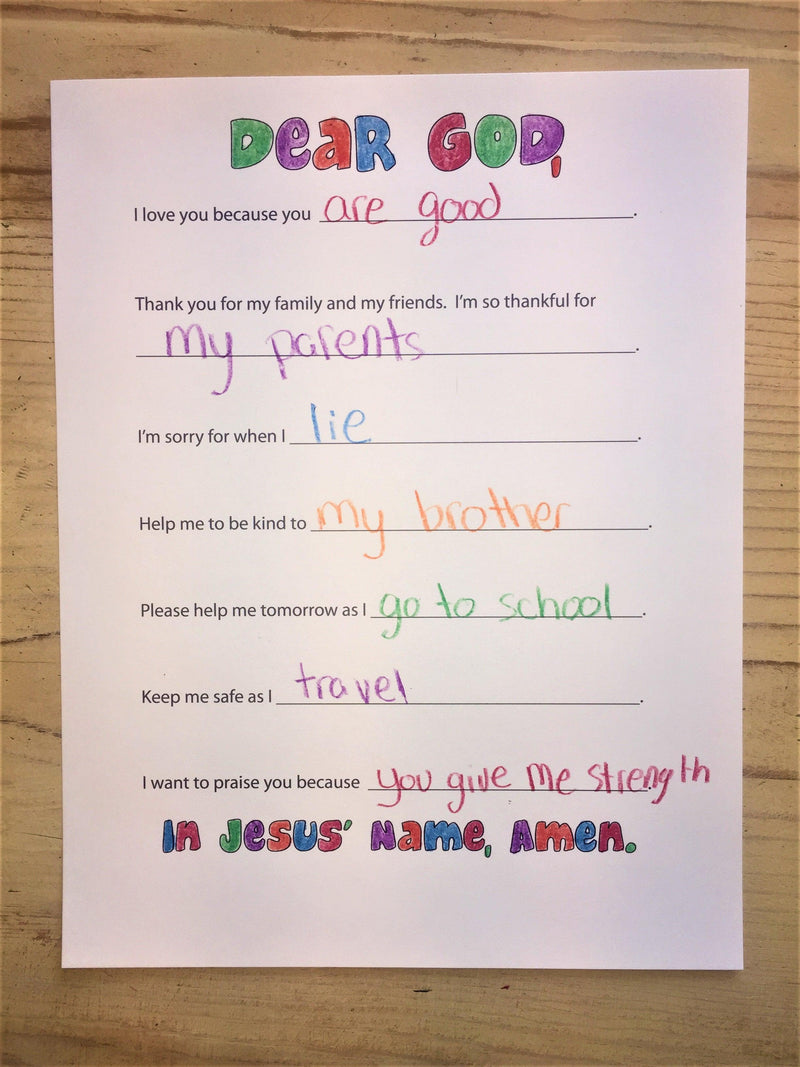 Dear God,
I love you because you are good.
Thank you for my family and my friends. I'm so thankful for
my parents.
I'm sorry for when I lie.
Help me to be kind to my brother.
Please help me tomorrow as I go to school.
Keep me safe as I travel.
I want to praise you because you give me strength.
In Jesus' Name, Amen.